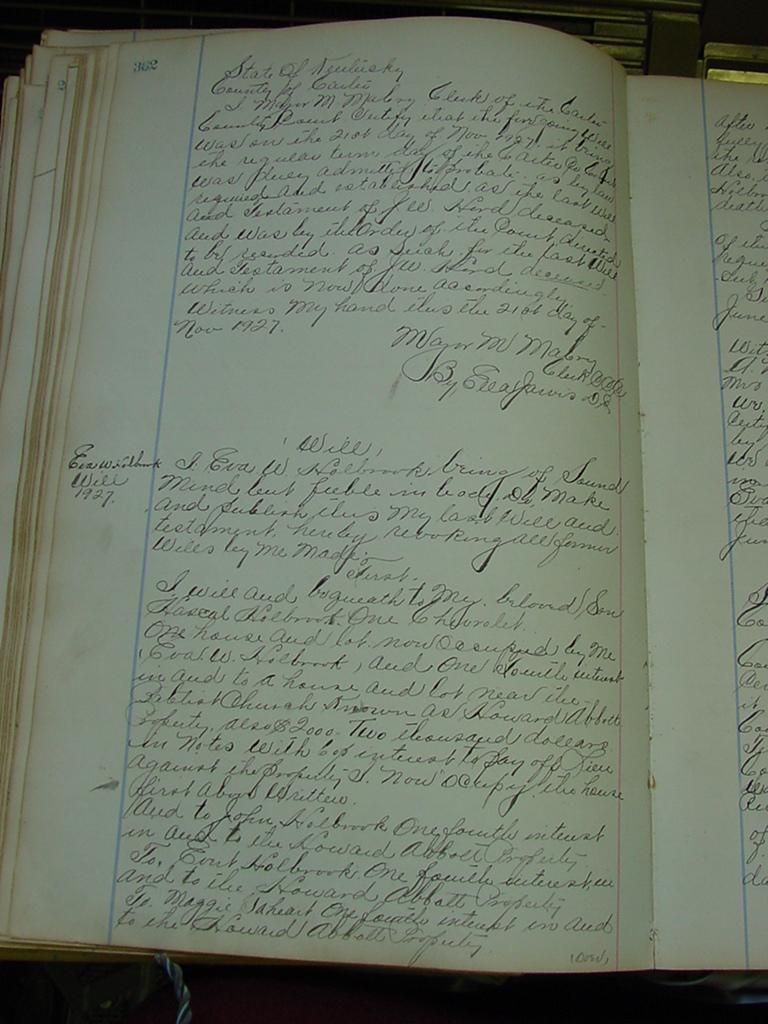 362
State Of Kentucky
County of Carter
I Major M. Mabry Clerk of the Carter
County Court Certify that the foregoing Will
was on the 21st day of Nov 1927. it being
the regular term day of the Carter Co Court
was duly admitted to probate. as by law
required and established as the last Will
and Testament of J.W. Hord deceased
and was by the Order of the Court, directed
to be recorded. as such. for the last Will
and Testament of J.W. Hord deceased.
which is now done accordingly.
Witness my hand this the 21st day of
Nov 1927.
Major M Mabry
Clerk C.C.C.
By Jarvis D.C.
"Will"
Eva W. Holbrook
Will
1927.
I. Eva W Holbrook being of Sound
Mind but feeble in body, Do, Make
And publish this My last Will and
testament, hereby revoking all former
Wills by Me Made;
First.
I will and bequeath to My. beloved Son
Hascal Holbrook. One Chevrolet.
One house and lot. now Occupied by Me
(Eva. W. Holbrook), and One fourth interest
in and to a house and lot near the
Baptist Church Known as Howard Abbott
Property. also $2000. Two thousand dollars
in Notes With 6% interest to pay off lien
against the Property I. Now Occupy. the house
first above Written.
And to John Holbrook One fourth interest
in and to the Howard Abbott Property
To, Holbrook One fourth interest, in
and to the Howard Abbott Property
To. Maggie One fourth interest in and
to the Howard Abbott Property
(Over)
after
June
Wit
Mrs
We,
by
in
Eva
Jun
it
of
da